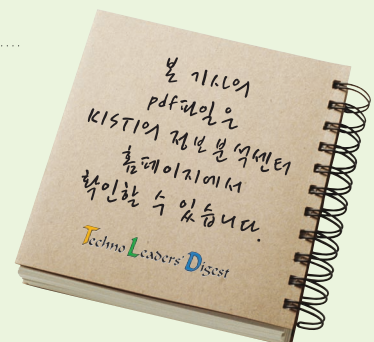 본 기사의
pdf파일은
KISTI의 정보분석센터
홈페이지에서
확인할 수 있습니다.
Techno Leaders' Digest